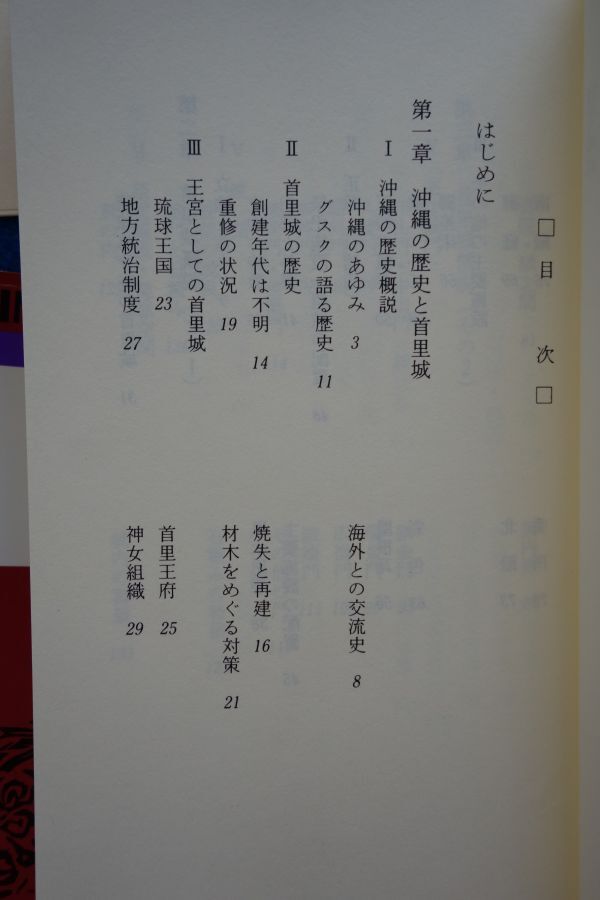 □目 次□
はじめに
第一章 沖縄の歴史と首里城
Ⅰ 沖縄の歴史概説
沖縄のあゆみ 3 海外との交流史 8
グスクの語る歴史 11
Ⅱ 首里城の歴史
創建年代は不明 14 焼失と再建 16
重修の状況 19 材木をめぐる対策 21
Ⅲ 王宮としての首里城
琉球王国 23 首里王府 25
地方統治制度 27 神女組織 29